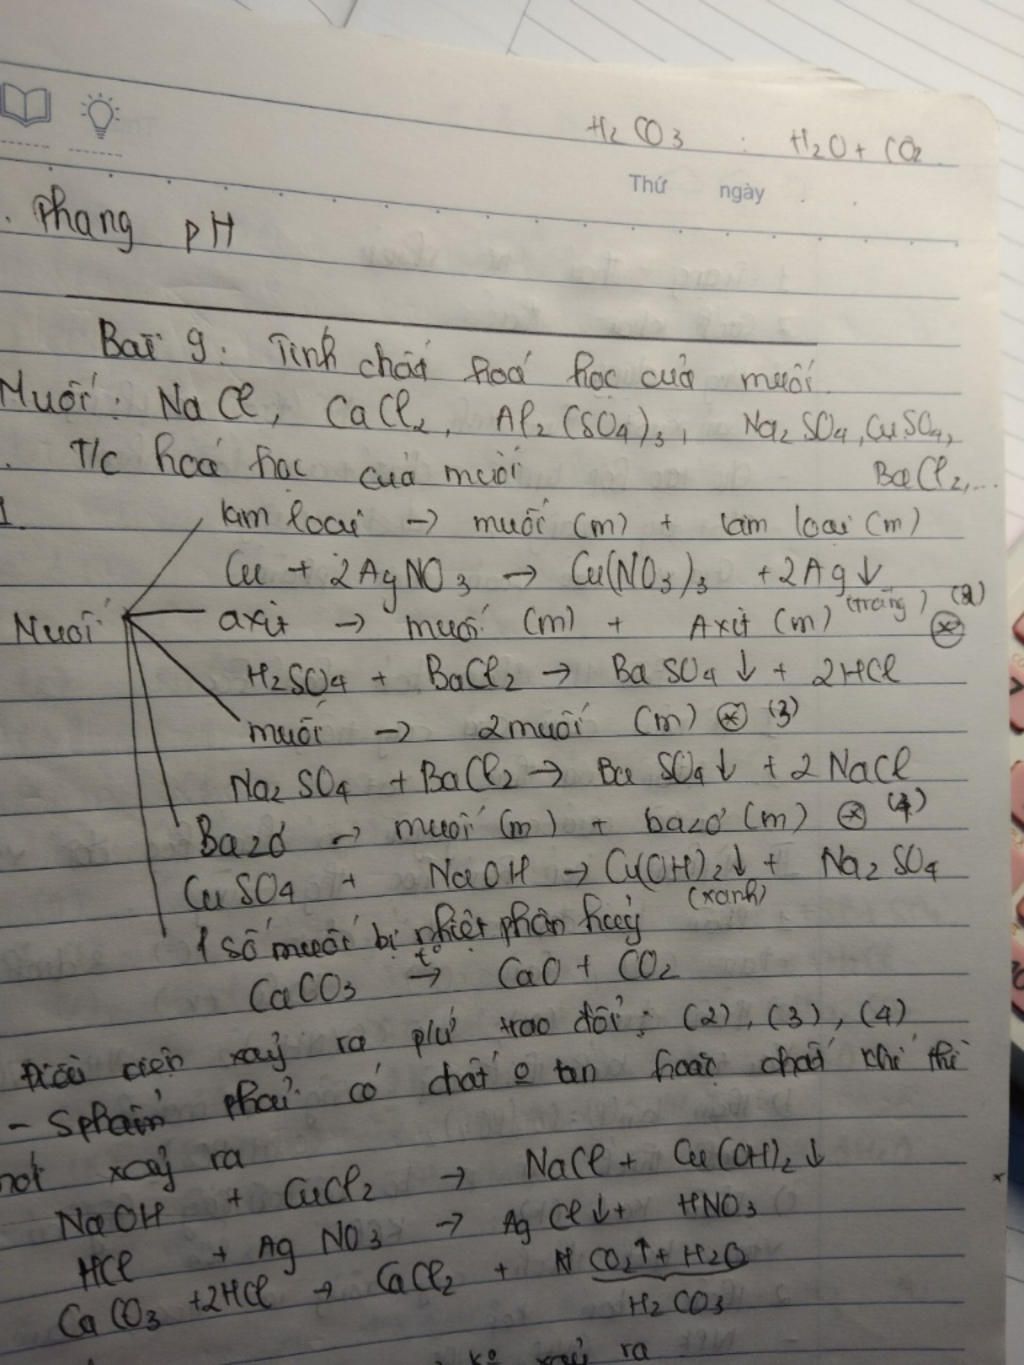 H₂CO₃ : H₂O + CO₂
Thứ ngày
. Phang pH
Bài 9: Tính chất hoá học của muối
Muối: NaCl, CaCl₂, Al₂(SO₄)₃, Na₂SO₄, CuSO₄,
BaCl₂,...
. T/c hoá học của muối
1.
kim loại → muối (m) + kim loại (m)
Cu + 2AgNO₃ → Cu(NO₃)₃ + 2Ag↓
(trắng) (2)
Muối axit → muối (m) + Axit (m) ⊛
H₂SO₄ + BaCl₂ → BaSO₄↓ + 2HCl
muối → 2muối (m) ⊛ (3)
Na₂SO₄ + BaCl₂ → BaSO₄↓ + 2NaCl
Bazơ → muối (m) + bazơ (m) ⊛ (4)
CuSO₄ + NaOH → Cu(OH)₂↓ + Na₂SO₄
(xanh)
1 số muối bị nhiệt phân huỷ
CaCO₃ t°→ CaO + CO₂
Điều kiện xảy ra pứ trao đổi: (2), (3), (4)
- Sphẩm phải có chất o tan hoặc chất khí thì
mới xảy ra
NaOH + CuCl₂ → NaCl + Cu(OH)₂↓
HCl + AgNO₃ → AgCl↓ + HNO₃
CaCO₃ + 2HCl → CaCl₂ + CO₂↑ + H₂O
H₂CO₃
ko xảy ra